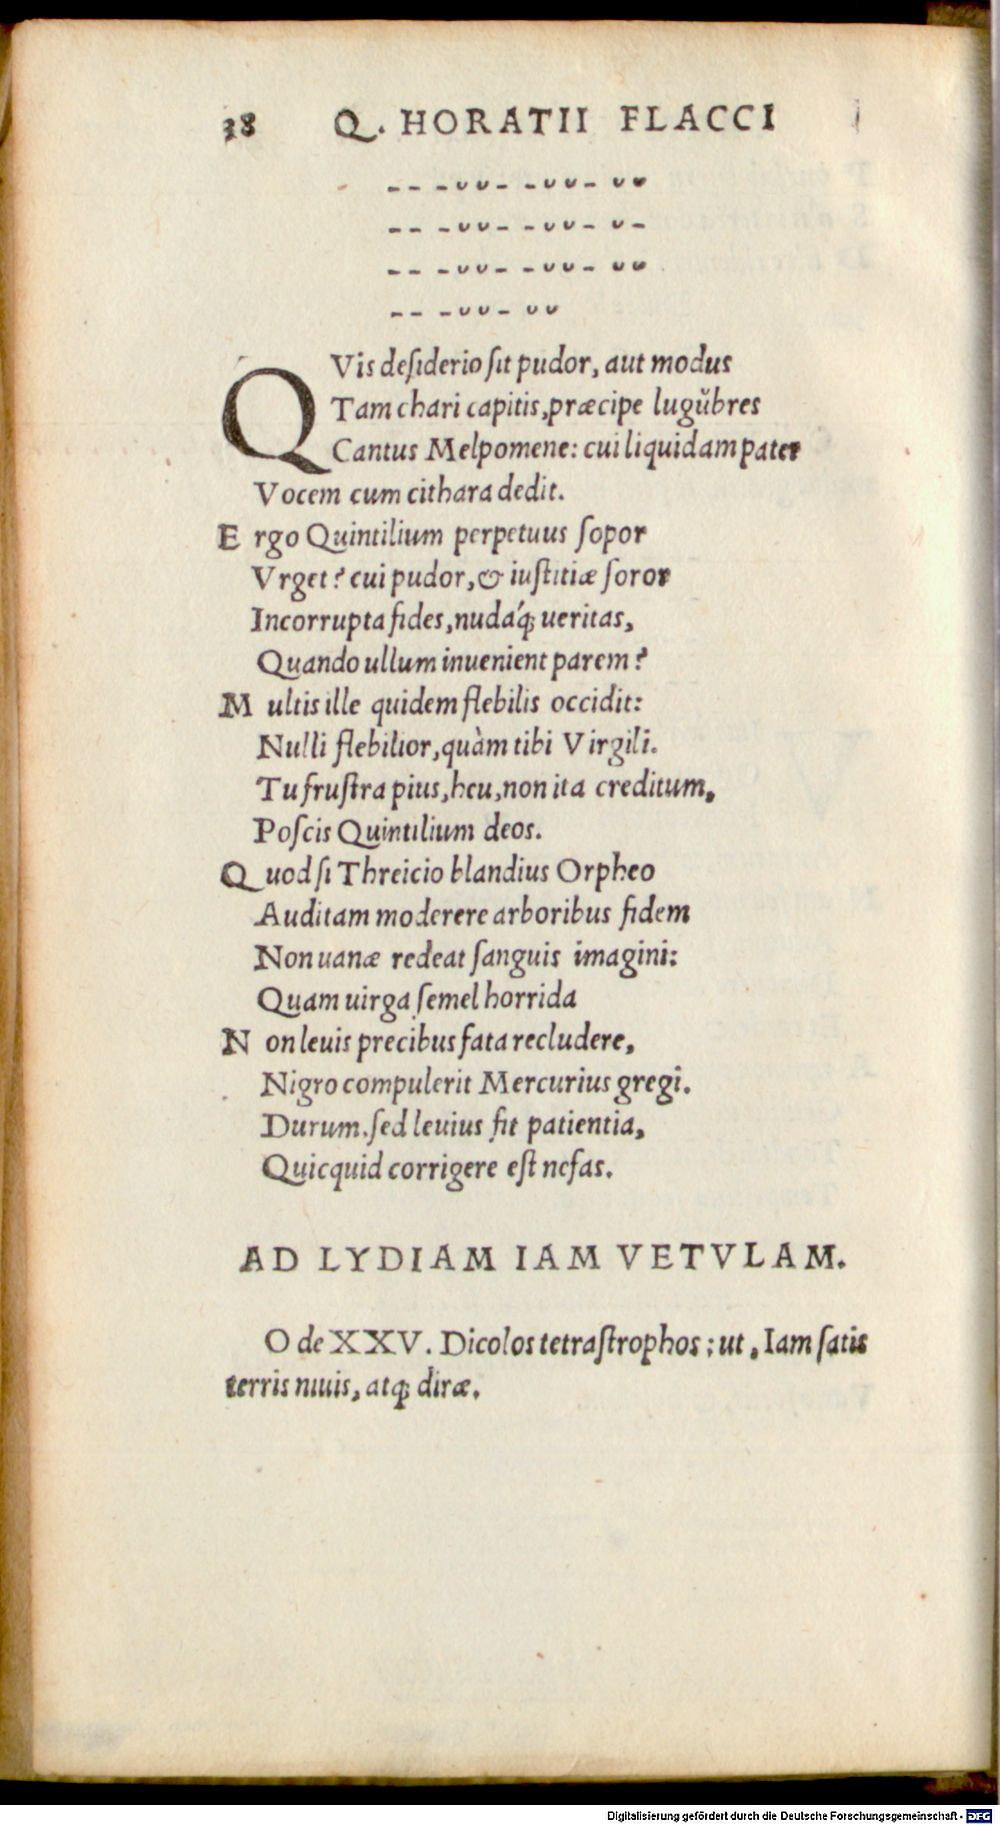 38 Q. HORATII FLACCI
-- -υυ- -υυ- υυ
-- -υυ- -υυ- υ-
-- -υυ- -υυ- υυ
-- -υυ- υυ
QVis deſiderio ſit pudor, aut modus
Tam chari capitis, præcipe lugŭbres
Cantus Melpomene: cui liquidam pater
Vocem cum cithara dedit.
Ergo Quintilium perpetuus ſopor
Vrget? cui pudor, & iuſtitiæ ſoror
Incorrupta fides, nudáq; ueritas,
Quando ullum inuenient parem?
Multis ille quidem flebilis occidit:
Nulli flebilior, quàm tibi Virgili.
Tu fruſtra pius, heu, non ita creditum,
Poſcis Quintilium deos.
Quod ſi Threicio blandius Orpheo
Auditam moderere arboribus fidem
Non uanæ redeat ſanguis imagini:
Quam uirga ſemel horrida
Non leuis precibus fata recludere,
Nigro compulerit Mercurius gregi.
Durum. ſed leuius fit patientia,
Quicquid corrigere eſt nefas.
AD LYDIAM IAM VETVLAM.
Ode XXV. Dicolos tetraſtrophos; ut, Iam ſatis
terris niuis, atq; diræ.
Digitalisierung gefördert durch die Deutsche Forschungsgemeinschaft - DFG